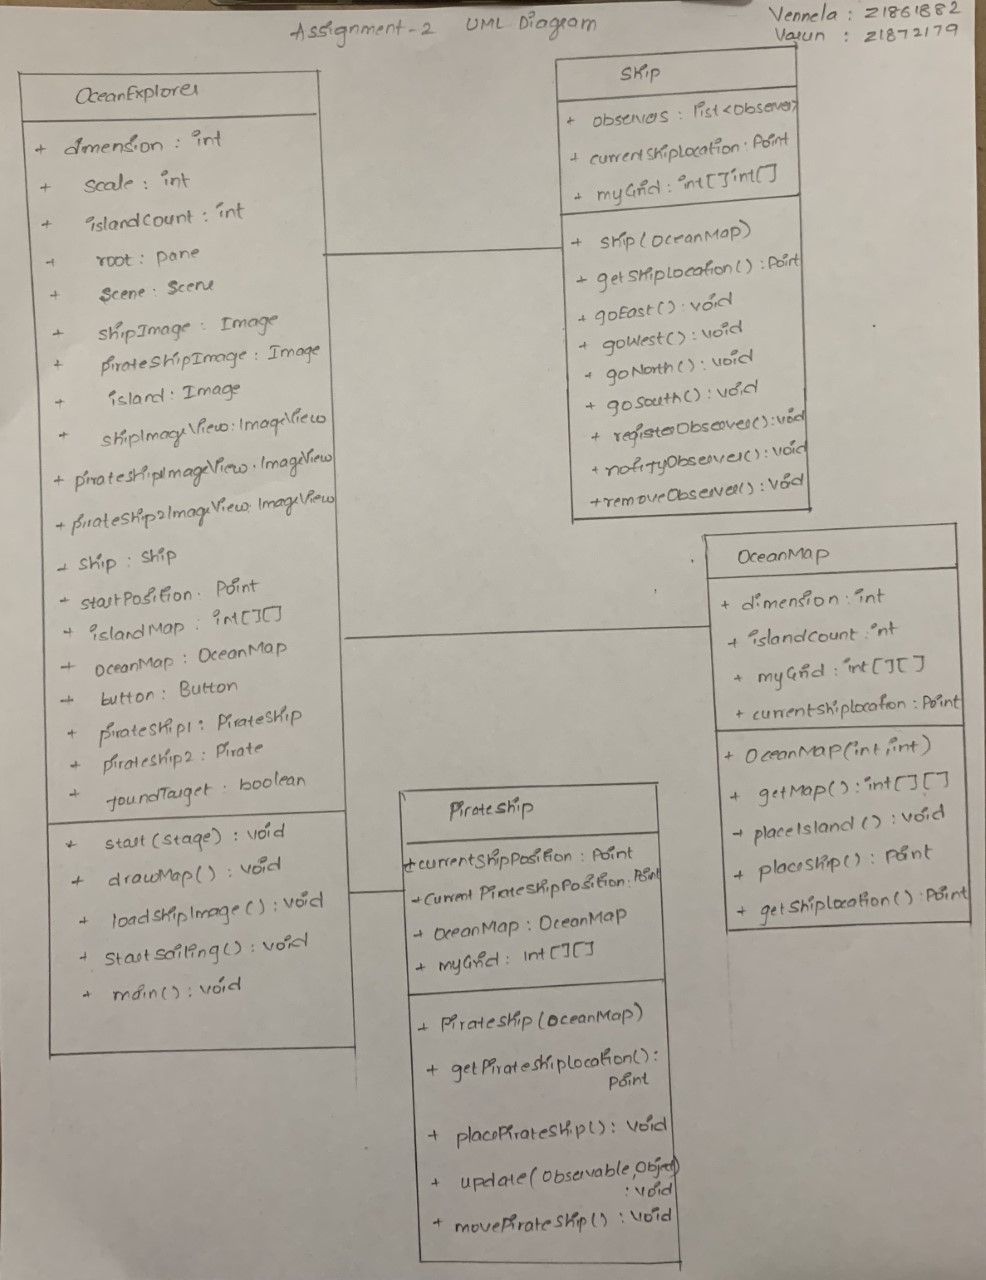 Assignment-2 UML Diagram
Vennela : Z1861882
Varun : Z1872179
OceanExplorer
+ dimension : int
+ scale : int
+ islandCount : int
+ root : pane
+ Scene : Scene
+ shipImage : Image
+ pirateShipImage : Image
+ island : Image
+ shipImageView : ImageView
+ pirateShipImageView : ImageView
+ pirateShip2ImageView : ImageView
+ Ship : Ship
+ startPosition : Point
+ islandMap : int[][]
+ oceanMap : OceanMap
+ button : Button
+ pirateShip1 : PirateShip
+ pirateShip2 : Pirate
+ foundTarget : boolean
+ start(stage) : void
+ drawMap() : void
+ loadShipImage() : void
+ startSailing() : void
+ main() : void
Ship
+ observers : list<Observer>
+ currentShiplocation : Point
+ myGrid : int[]int[]
+ Ship(OceanMap)
+ getShiplocation() : Point
+ goEast() : void
+ goWest() : void
+ goNorth() : void
+ goSouth() : void
+ registerObserver() : void
+ notifyObserver() : void
+ removeObserver() : void
OceanMap
+ dimension : int
+ islandcount : int
+ myGrid : int[][]
+ currentShiplocation : Point
+ OceanMap(int, int)
+ getMap() : int[][]
+ placeIsland() : void
+ placeShip() : Point
+ getShiplocation() : Point
PirateShip
+ currentShipPosition : Point
+ Current PirateShipPosition : Point
+ OceanMap : OceanMap
+ myGrid : int[][]
+ PirateShip(OceanMap)
+ getPirateShiplocation() :
Point
+ placePirateShip() : void
+ update(Observable, Object)
: void
+ movePirateShip() : void